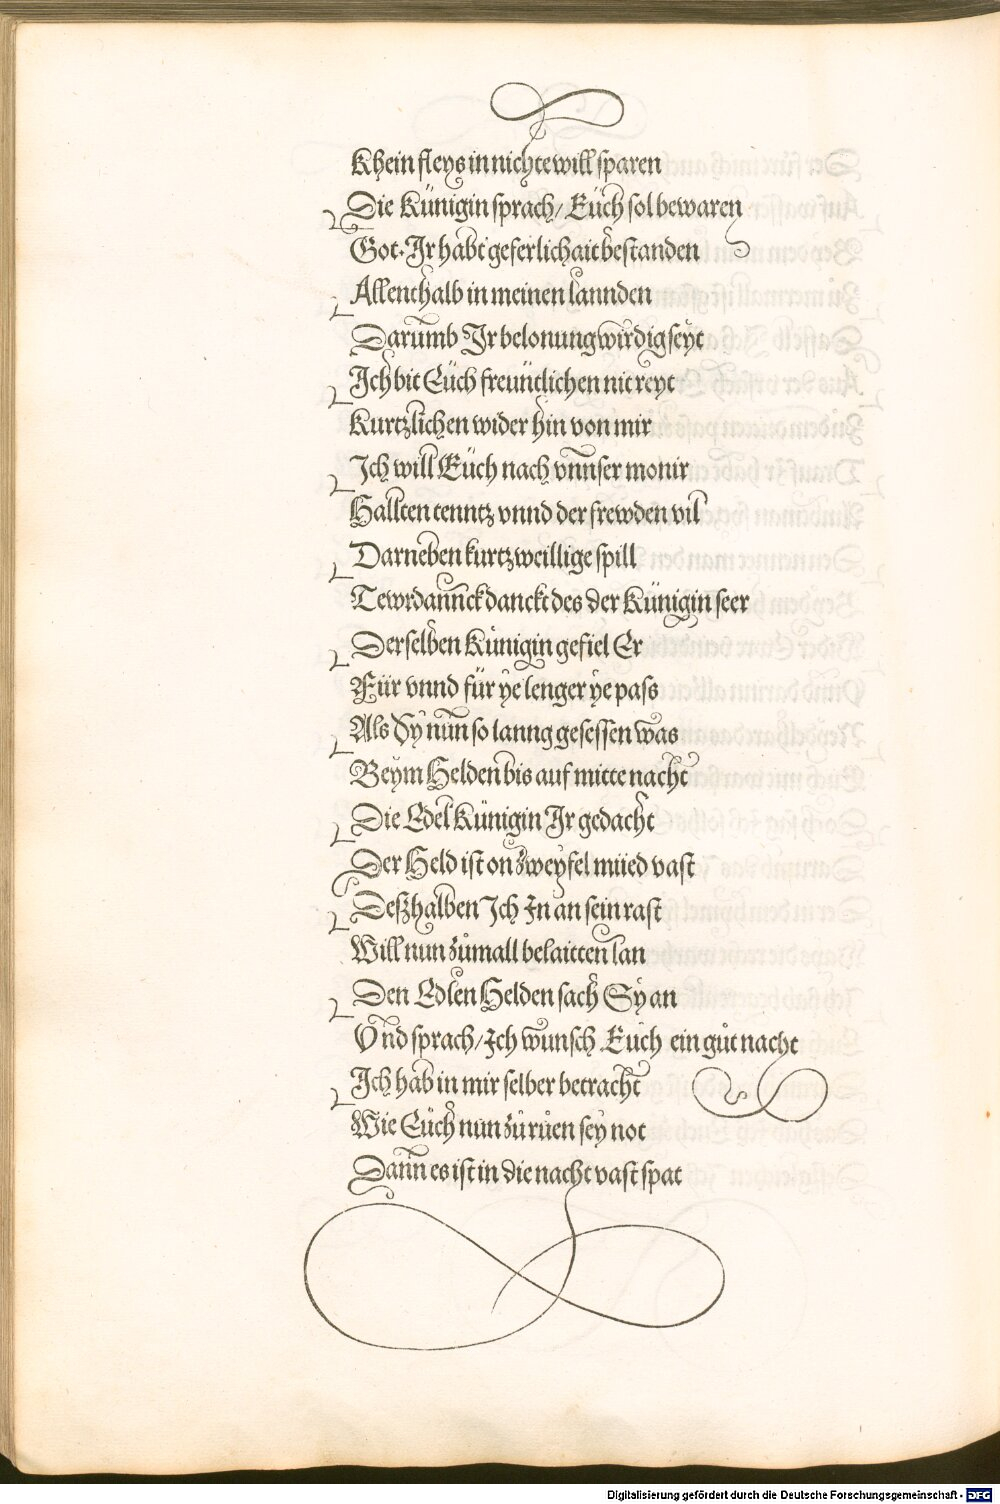 Khein fleys in nichte will sparen
Die Künigin sprach / Eüch sol bewaren
Got. Ir habt geferlichait bestanden
Allenthalb in meinen lannden
Darumb Ir belonung wirdig seyt
Ich bit Eüch freuntlichen nit reyt
Kurtzlichen wider hin von mir
Ich will Eüch nach vnnser monir
Hallten tenntz vnnd der frewden vil
Darneben kurtzweillige spill
Tewrdannck danckt des der Künigin seer
Derselben Künigin gefiel Er
Für vnnd für ye lenger ye pass
Als Sy nun so lanng gesessen was
Beym Helden bis auf mitte nacht
Die Edel Künigin Ir gedacht
Der Held ist on zweyfel müed vast
Deszhalben Ich In an sein rast
Will nun zůmall belaitten lan
Den Edlen Helden sach Sy an
Vnd sprach / Ich wunsch Eüch ein gůt nacht
Ich hab in mir selber betracht
Wie Eüch nun zů růen sey not
Dann es ist in die nacht vast spat
Digitalisierung gefördert durch die Deutsche Forschungsgemeinschaft - DFG